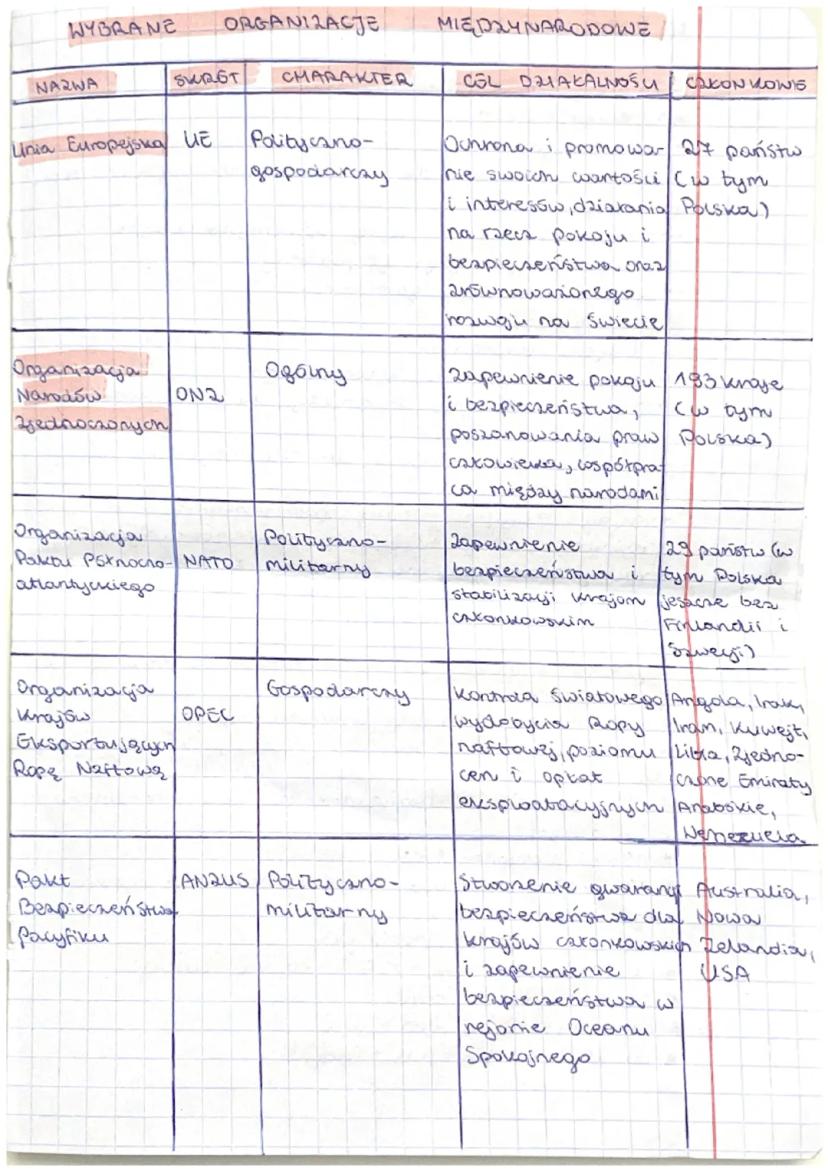 WYBRANE ORGANIZACJE MIĘDZYNARODOWE
NAZWA SKRÓT CHARAKTER CEL DZIAŁALNOŚCI CZŁONKOWIE
Unia Europejska UE Polityczno-
gospodarczy
Ochrona i promowa-
nie swoich wartości
i interesów, działania
na rzecz pokoju i
bezpieczeństwa oraz
zrównoważonego
rozwoju na świecie
27 państw
(w tym
Polska)
Organizacja
Narodów
Zjednoczonych
ONZ
Ogólny
zapewnienie pokoju
i bezpieczeństwa,
poszanowania praw
człowieka, współpra
ca między narodami
193 kraje
(w tym
Polska)
Organizacja
Paktu Północno-
atlantyckiego
NATO
Polityczno-
militarny
zapewnienie
bezpieczeństwa i
stabilizacji krajom
członkowskim
29 państw (w
tym Polska
jeszcze bez
Finlandii i
Szwecji)
Organizacja
Krajów
Eksportujących
Ropę Naftową
OPEC
Gospodarczy
Kontrola światowego
wydobycia Ropy
naftowej, poziomu
cen i opłat
eksploatacyjnych
Angola, Irak,
Iran, Kuwejt,
Libia, Zjedno-
czone Emiraty
Arabskie,
Wenezuela
Pakt
Bezpieczeństwa
Pacyfiku
ANZUS
Polityczno-
militarny
Stworzenie gwarancji
bezpieczeństwa dla
krajów członkowskich
i zapewnienie
bezpieczeństwa w
rejonie Oceanu
Spokojnego
Australia,
Nowa
Zelandia,
USA